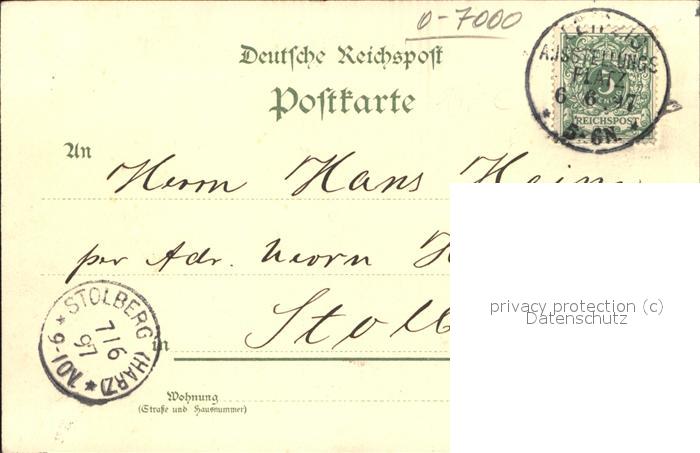 0-7000
Deutsche Reichspost
Postkarte
LEIPZIG
AUSSTELLUNGS
PLATZ
6 6 97
5-6N.
5
REICHSPOST
An
Herrn Hans
per Adr. Herrn H
STOLBERG (HARZ)
7/6
97
9-10V.
in Stolb
privacy protection (c)
Datenschutz
Wohnung
(Straße und Hausnummer)